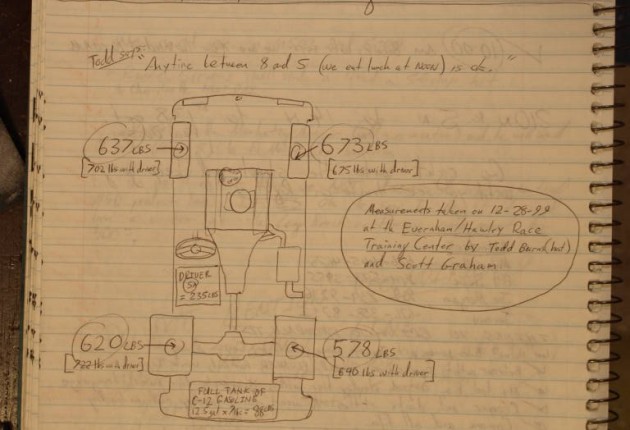 Todd says: "Anytime between 8 and 5 (we eat lunch at NOON) is ok."
637 LBS
[702 lbs with driver]
673 LBS
[675 lbs with driver]
Measurements taken on 12-28-99
at the Evernham/Hawley Race
Training Center by Todd
and Scott Graham.
DRIVER
= 235 LBS
620 LBS
[722 lbs with driver]
578 LBS
[690 lbs with driver]
FULL TANK OF
C-12 GASOLINE